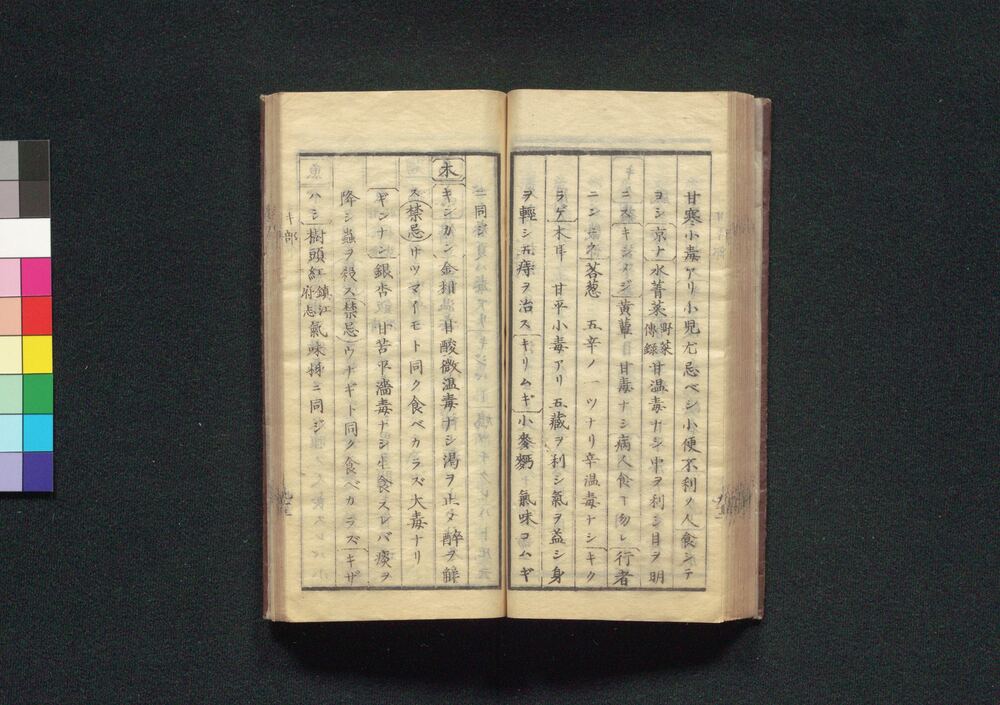 甘寒小毒アリ小兒尤忌ベシ小便不利ノ人食シテ
ヨシ京ナ水菁菜野菜傳錄甘温毒ナシ中ヲ利シ目ヲ明
ニスキジカシ黄蕈甘毒ナシ病人食下物レ行者
ニンニク茖葱五辛ノ一ツナリ辛温毒ナシキク
ラゲ木耳甘平小毒アリ五藏ヲ利シ氣ヲ益シ身
ヲ輕シ五痔ヲ治スキリムギ小麥麪氣味コムギ
ニ同シ
木キンカン金橘甘酸微温毒ナシ渴ヲ止メ醉ヲ解
ス禁忌サツマイモト同ク食ベカラズ大毒ナリ
ギンナン銀杏甘苦平濇毒ナシ生食スレバ痰ヲ
降シ蟲ヲ殺ス禁忌ウナギト同ク食ベカラズキザ
ハシ樹頭紅鎮江府志氣味柿ニ同ジ
キ部